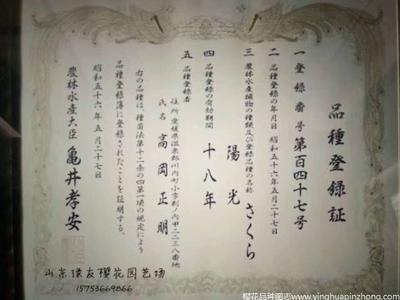 品種登録証
一 登録番号 第百四十七号
二 品種登録の年月日 昭和五十六年五月二十七日
三 農林水産植物の種類及び登録品種の名称
さくら
陽光
四 品種登録の有効期間 十八年
五 品種登録者
住所 愛媛県温泉郡川内町小字則ノ内甲二二三八番地
氏名 高岡正明
右の品種は、種苗法第十二条の四第一項の規定により
品種登録簿に登録されたことを証明する。
昭和五十六年五月二十七日
農林水産大臣 亀井孝安
山东澳友樱花园艺场
15753669866
樱花品种图志/www.yinghuapinzhong.com